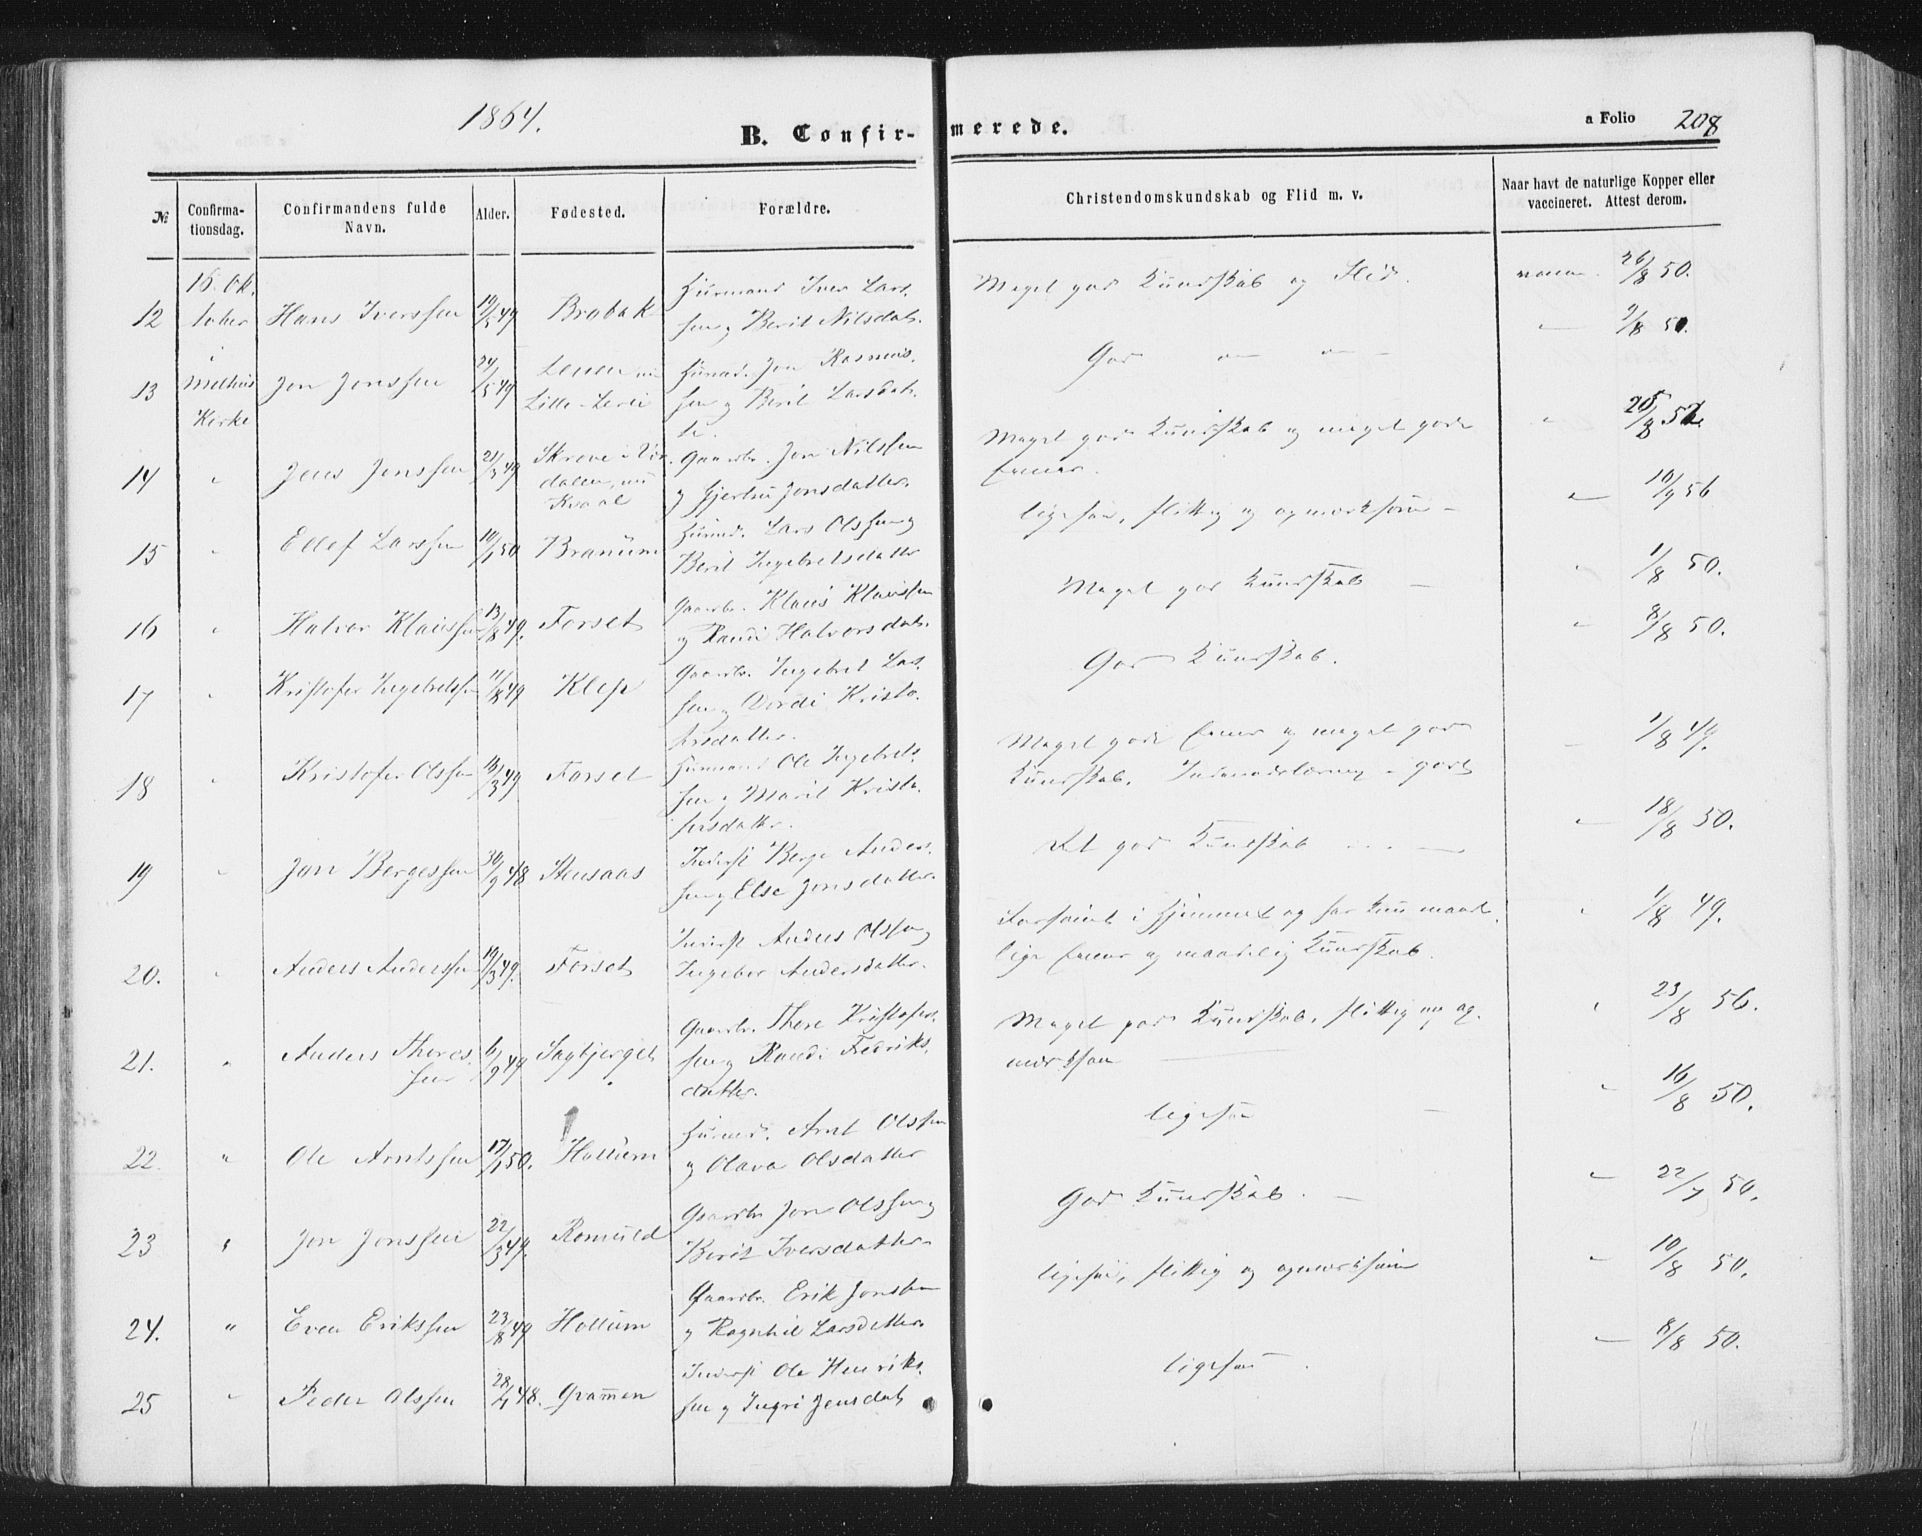 1864.
B. Confir-
merede.
a Folio 208
№
Confirma-
tionsdag.
Confirmandens fulde
Navn.
Alder.
Fødested.
Forældre.
Christendomskundskab og Flid m. v.
Naar havt de naturlige Kopper eller
vaccineret. Attest derom.
16. Ok.
tober
i
Melhus
Kirke
12 Hans Iverssen 19/5 49 Brobak
Huusmand Iver Lars.
sen og Berit Nilsdat.
Meget god Kundskab og Flid. 26/8 50.
13 Jon Jonssen 24/5 49
Huusmd. Jon Rasmus.
sen og Berit Larsdat.
God 9/8 50.
14 " Jens Jonssen 21/3 49 Skrove i Vær
dalen, nu
Kvaal
Gaardbr. Jon Nilssen
og Gjertru Jonsdatter.
Meget god Kundskab og meget gode
Evner.
15 " Ellef Larssen 10/1 50 Branum
Huusmd. Lars Olssen og
Berit Ingebretsdatter
ligesaa, flittig og opmærksom 10/9 56
16 " Halvor Klaussen 13/8 49. Forset
Gaardbr. Klaus Klaussen
og Randi Halvorsdat.
Meget god Kundskab 1/8 50.
17 " Kristofer Ingebretssen 11/8 49 Klep
Gaardbr. Ingebret Lar.
sen og Dordi Kristo.
fersdatter.
God Kundskab. 8/8 50.
18 " Kristofer Olssen 18/3 49 Forset
Huusmand Ole Ingebrets.
sen og Marit Kristo.
fersdatter.
Meget gode Evner og meget god
Kundskab. 1/8 49.
19 " Jon Bergessen 30/9 48 Stensaas
Inderst Berge Anders.
sen og Else Jonsdatter.
Ret god Kundskab 18/8 50.
20. " Anders Anderssen 19/3 49. Forset
Inderst Anders Olssen og
Ingebor Andersdatter.
Forsømt i Hjemmet og har kun maade.
lige Evner og maadelig Kundskab. 1/8 49.
21. " Anders Thores.
sen 6/9 49 Sagbjerget
Gaardbr. Thore Kristofer.
sen og Randi Fredriks.
datter.
Meget god Kundskab, flittig og op.
mærksom 23/8 56.
22. " Ole Arntssen 17/1 50. Hollum
Huusmd. Arnt Olssen
og Olava Olsdatter
ligesaa 16/8 50.
23 " Jon Jonssen 22/3 49. Romuld
Gaardbr. Jon Olssen og
Berit Iversdatter
God Kundskab. 22/7 50.
24. " Even Erikssen 23/8 49 Hollum
Gaardbr. Erik Jonssen
og Ragnhil Larsdatter
ligesaa, flittig og opmærksom 10/8 50.
25 " Peder Olssen 28/1 48. Grammen
Inderst Ole Henriks.
sen og Ingri Jensdat.
ligesaa. 8/8 50.